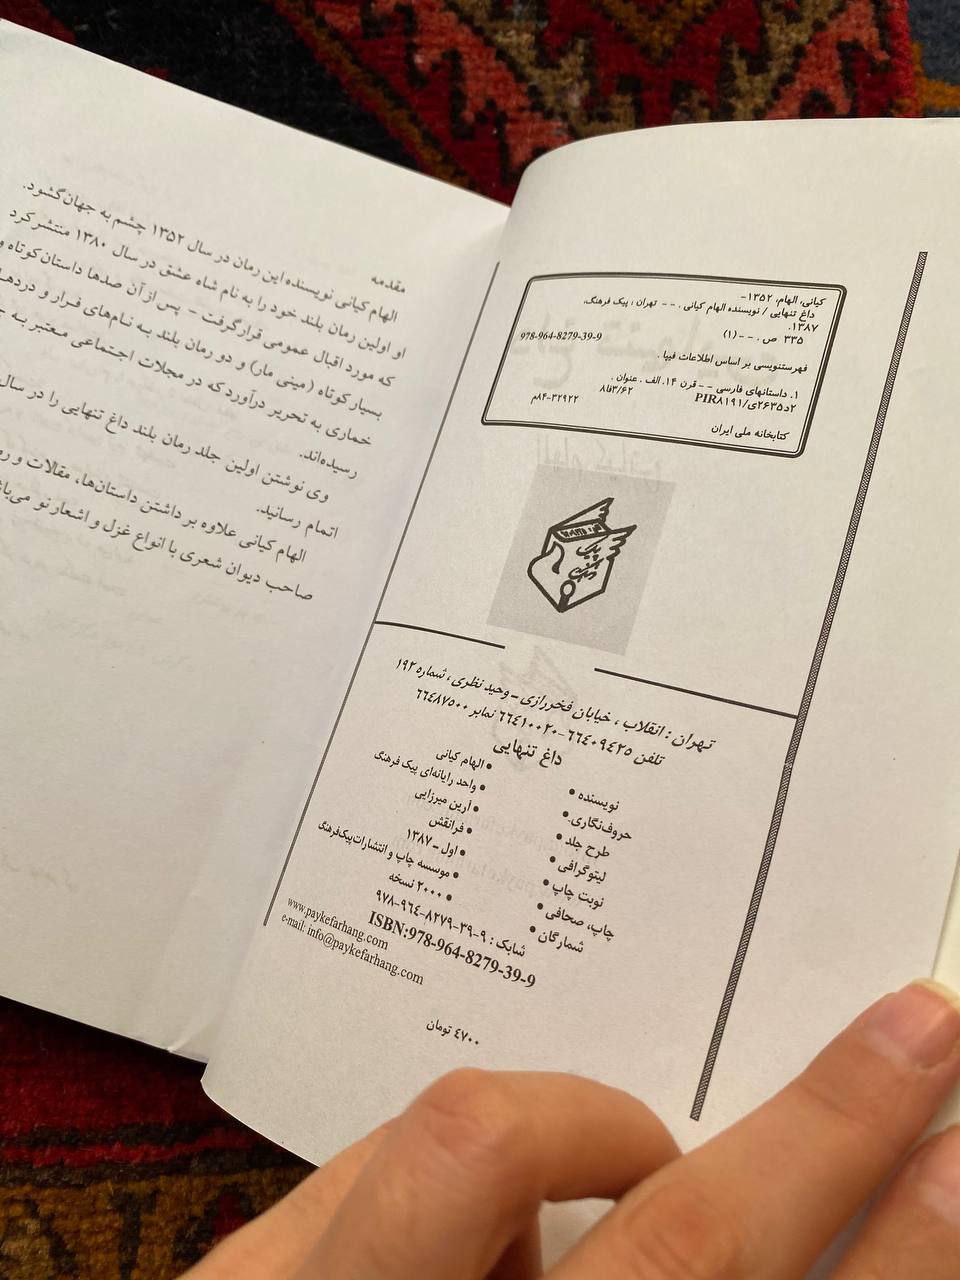 کیانی، الهام، ۱۳۵۲-
داغ تنهایی / نویسنده الهام کیانی . -- تهران : پیک فرهنگ،
۱۳۸۷.
۳۳۵ ص . -- (۱)
978-964-8279-39-9
فهرستنویسی بر اساس اطلاعات فیپا .
۱. داستانهای فارسی -- قرن ۱۴. الف . عنوان .
۲د۲۶۳۵ی/PIR۸۱۹۱ ۸فا۳/۶۲
کتابخانه ملی ایران ۸۴-۳۲۹۲۲م
پیک فرهنگ
تهران : انقلاب ، خیابان فخررازی - وحید نظری ، شماره ۱۹۲
تلفن ۶۶۴۰۹۴۲۵-۶۶۴۱۰۰۲۰ نمابر ۶۶۴۸۷۵۰۰
داغ تنهایی
نویسنده • • الهام کیانی
حروف‌نگاری • • واحد رایانه‌ای پیک فرهنگ
طرح جلد • • آرین میرزایی
لیتوگرافی • • فرانقش
نوبت چاپ • • اول - ۱۳۸۷
چاپ، صحافی • • موسسه چاپ و انتشارات پیک‌فرهنگ
شمارگان • • ۲۰۰۰ نسخه
شابک : ۹-۳۹-۸۲۷۹-۹۶۴-۹۷۸
ISBN:978-964-8279-39-9
www.paykefarhang.com
e-mail: info@paykefarhang.com
۴۷۰۰ تومان
مقدمه
الهام کیانی نویسنده این رمان در سال ۱۳۵۲ چشم به جهان گشود.
او اولین رمان بلند خود را به نام شاه عشق در سال ۱۳۸۰ منتشر کرد
که مورد اقبال عمومی قرار گرفت - پس از آن صدها داستان کوتاه و
بسیار کوتاه (مینی مار) و دو رمان بلند به نام‌های فرار و دردهـ
خماری به تحریر درآورد که در مجلات اجتماعی معتبر به چـ
رسیده‌اند.
وی نوشتن اولین جلد رمان بلند داغ تنهایی را در سال
اتمام رسانید.
الهام کیانی علاوه بر داشتن داستان‌ها، مقالات و
صاحب دیوان شعری با انواع غزل و اشعار نو